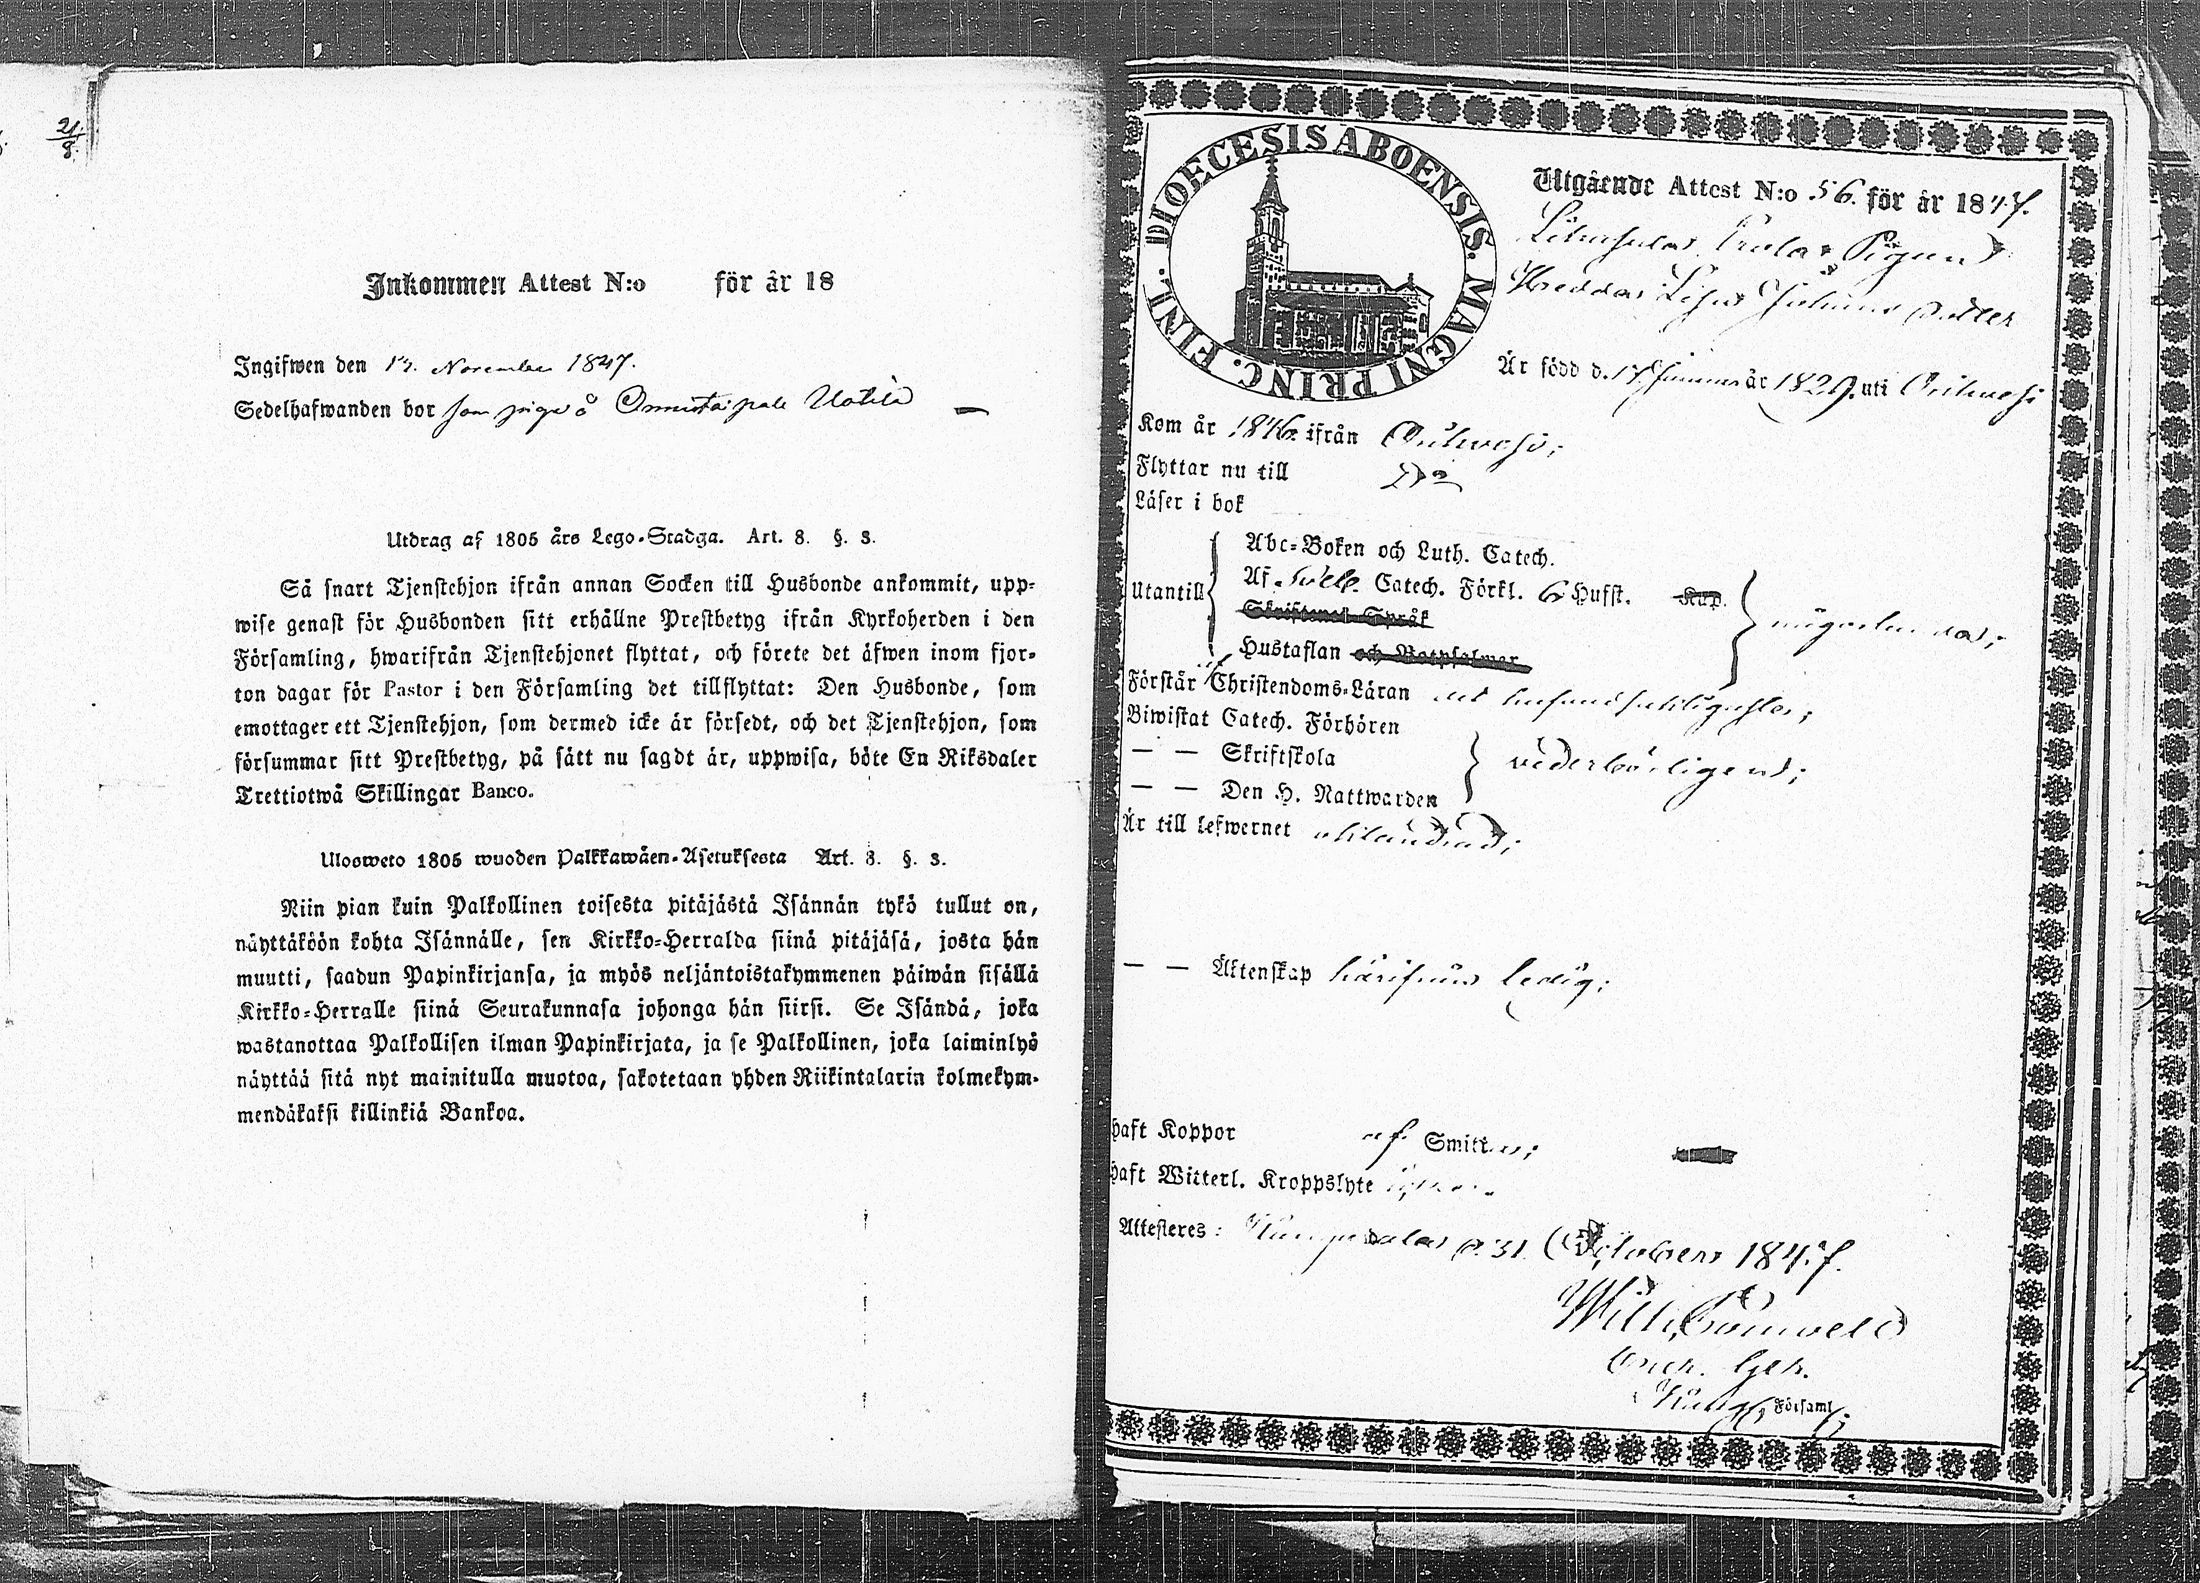 21/8.
Inkommen Attest N:o för år 18
Ingifwen den 13. November 1847.
Sedelhafwanden bor som piga å Onnistaipale Uotila —
Utdrag af 1805 års Lego-Stadga. Art. 8. §. 3.
Så snart Tjenstehjon ifrån annan Socken till Husbonde ankommit, upp-
wise genast för Husbonden sitt erhållne Prestbetyg ifrån Kyrkoherden i den
Församling, hwarifrån Tjenstehjonet flyttat, och förete det äfwen inom fjor-
ton dagar för Pastor i den Församling det tillflyttat: Den Husbonde, som
emottager ett Tjenstehjon, som dermed icke är försedt, och det Tjenstehjon, som
försummar sitt Prestbetyg, på sätt nu sagdt är, uppwisa, böte En Riksdaler
Trettiotwå Skillingar Banco.
Ulosweto 1805 wuoden Palkkawäen-Asetuksesta Art. 8. §. 3.
Niin pian kuin Palkollinen toisesta pitäjästä Isännän tykö tullut on,
näyttäköön kohta Isännälle, sen Kirkko-Herralda siinä pitäjäsä, josta hän
muutti, saadun Papinkirjansa, ja myös neljäntoistakymmenen päiwän sisällä
Kirkko-Herralle siinä Seurakunnasa johonga hän siirsi. Se Isändä, joka
wastanottaa Palkollisen ilman Papinkirjata, ja se Palkollinen, joka laiminlyö
näyttää sitä nyt mainitulla muotoa, sakotetaan yhden Riikintalarin kolmekym-
mendäkaksi killinkiä Bankoa.
DIOECESIS ABOENSIS. MAGNI PRINC. FINL.
Utgående Attest N:o 56. för år 1847.
Pigan
Hedda Lisa dotter
Är född d. 17 år 1829. uti Orihvesi
Kom år 1846. ifrån Orihvesi;
Flyttar nu till D:o
Läser i bok
Abc-Boken och Luth. Catech.
Utantill Af Sveb. Catech. Förkl. 6 Hufst. Kap.
Skriftenes Språk
Hustaflan och Botpsalmer
Förstår Christendoms-Läran
Biwistat Catech. Förhören
— — Skriftskola vederbörligen;
— — Den H. Nattwarden
Är till lefwernet oklandrad;
— — Äktenskap härifrån ledig;
haft Koppor af Smittan;
haft Witterl. Kroppslyte
Attesteres: d. 31. October 1847.
Församl.